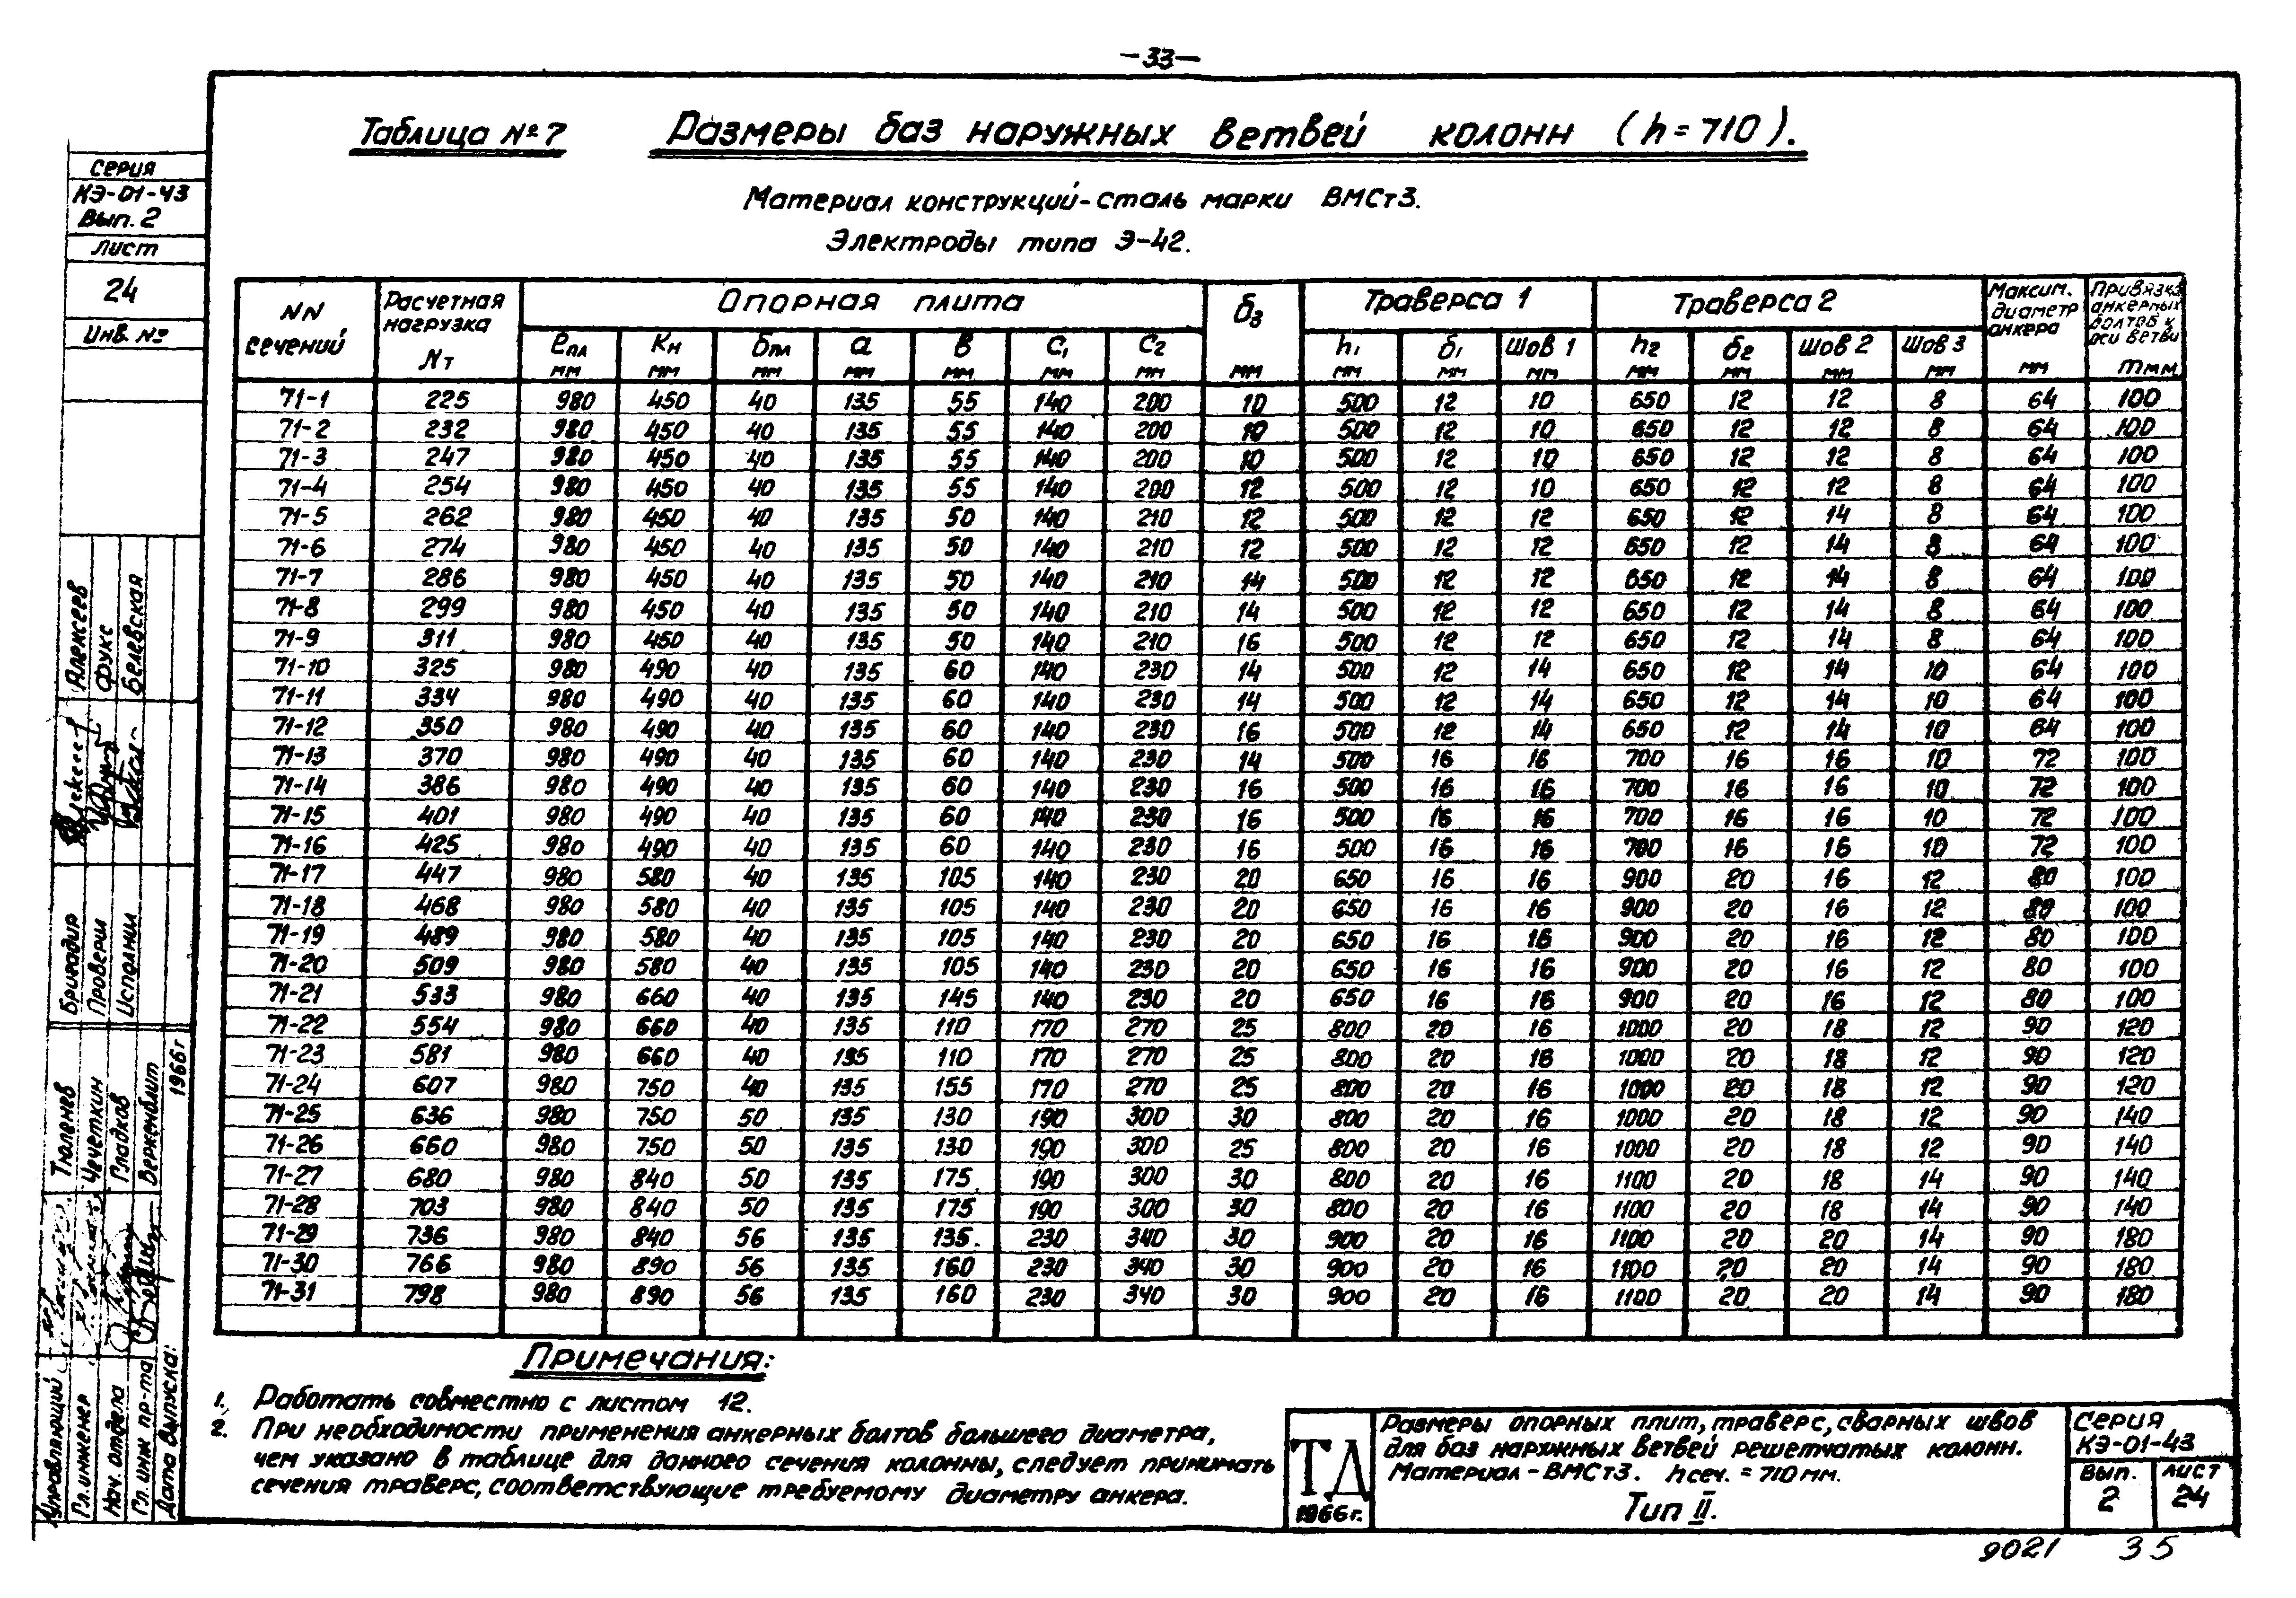 -33-
Таблица №7 Размеры баз наружных ветвей колонн (h=710).
Материал конструкций-сталь марки ВМСт3.
Электроды типа Э-42.
Серия
КЭ-01-43
Вып. 2
лист
24
Инв. №
NN сечений | Расчетная нагрузка Nт | Опорная плита | δ3 мм | Траверса 1 | Траверса 2 | Максим. диаметр анкера мм | Привязка анкерных болтов к оси ветви m мм
ℓпл мм | Кн мм | δпл мм | а мм | в мм | С1 мм | С2 мм | h1 мм | δ1 мм | Шов 1 мм | h2 мм | δ2 мм | Шов 2 мм | Шов 3 мм
71-1 225 980 450 40 135 55 140 200 10 500 12 10 650 12 12 8 64 100
71-2 232 980 450 40 135 55 140 200 10 500 12 10 650 12 12 8 64 100
71-3 247 980 450 40 135 55 140 200 10 500 12 10 650 12 12 8 64 100
71-4 254 980 450 40 135 55 140 200 12 500 12 10 650 12 12 8 64 100
71-5 262 980 450 40 135 50 140 210 12 500 12 12 650 12 14 8 64 100
71-6 274 980 450 40 135 50 140 210 12 500 12 12 650 12 14 8 64 100
71-7 286 980 450 40 135 50 140 210 14 500 12 12 650 12 14 8 64 100
71-8 299 980 450 40 135 50 140 210 14 500 12 12 650 12 14 8 64 100
71-9 311 980 450 40 135 50 140 210 16 500 12 12 650 12 14 8 64 100
71-10 325 980 490 40 135 60 140 230 14 500 12 14 650 12 14 10 64 100
71-11 334 980 490 40 135 60 140 230 14 500 12 14 650 12 14 10 64 100
71-12 350 980 490 40 135 60 140 230 16 500 12 14 650 12 14 10 64 100
71-13 370 980 490 40 135 60 140 230 14 500 16 16 700 16 16 10 72 100
71-14 386 980 490 40 135 60 140 230 16 500 16 16 700 16 16 10 72 100
71-15 401 980 490 40 135 60 140 230 16 500 16 16 700 16 16 10 72 100
71-16 425 980 490 40 135 60 140 230 16 500 16 16 700 16 16 10 72 100
71-17 447 980 580 40 135 105 140 230 20 650 16 16 900 20 16 12 80 100
71-18 468 980 580 40 135 105 140 230 20 650 16 16 900 20 16 12 80 100
71-19 489 980 580 40 135 105 140 230 20 650 16 16 900 20 16 12 80 100
71-20 509 980 580 40 135 105 140 230 20 650 16 16 900 20 16 12 80 100
71-21 533 980 660 40 135 145 140 230 20 650 16 16 900 20 16 12 80 100
71-22 554 980 660 40 135 110 170 270 25 800 20 16 1000 20 18 12 90 120
71-23 581 980 660 40 135 110 170 270 25 800 20 16 1000 20 18 12 90 120
71-24 607 980 750 40 135 155 170 270 25 800 20 16 1000 20 18 12 90 120
71-25 636 980 750 50 135 130 190 300 30 800 20 16 1000 20 18 12 90 140
71-26 660 980 750 50 135 130 190 300 25 800 20 16 1000 20 18 12 90 140
71-27 680 980 840 50 135 175 190 300 30 800 20 16 1100 20 18 14 90 140
71-28 703 980 840 50 135 175 190 300 30 800 20 16 1100 20 18 14 90 140
71-29 736 980 840 56 135 135 230 340 30 900 20 16 1100 20 20 14 90 180
71-30 766 980 890 56 135 160 230 340 30 900 20 16 1100 20 20 14 90 180
71-31 798 980 890 56 135 160 230 340 30 900 20 16 1100 20 20 14 90 180
Примечания:
1. Работать совместно с листом 12.
2. При необходимости применения анкерных болтов большего диаметра,
чем указано в таблице для данного сечения колонны, следует принимать
сечения траверс, соответствующие требуемому диаметру анкера.
ТД
1966г.
Размеры опорных плит, траверс, сварных швов
для баз наружных ветвей решетчатых колонн.
Материал-ВМСт3. hсеч. = 710 мм.
Тип II.
Серия
КЭ-01-43
Вып. 2
лист 24
9021 35
Алексеев
Фукс
Белевская
Бригадир
Проверил
Исполнил
Тюленев
Чечеткин
Гладков
Верженблит
1966г
Управляющий
Гл. инженер
Нач. отдела
Гл. инж. пр-та
Дата выпуска: